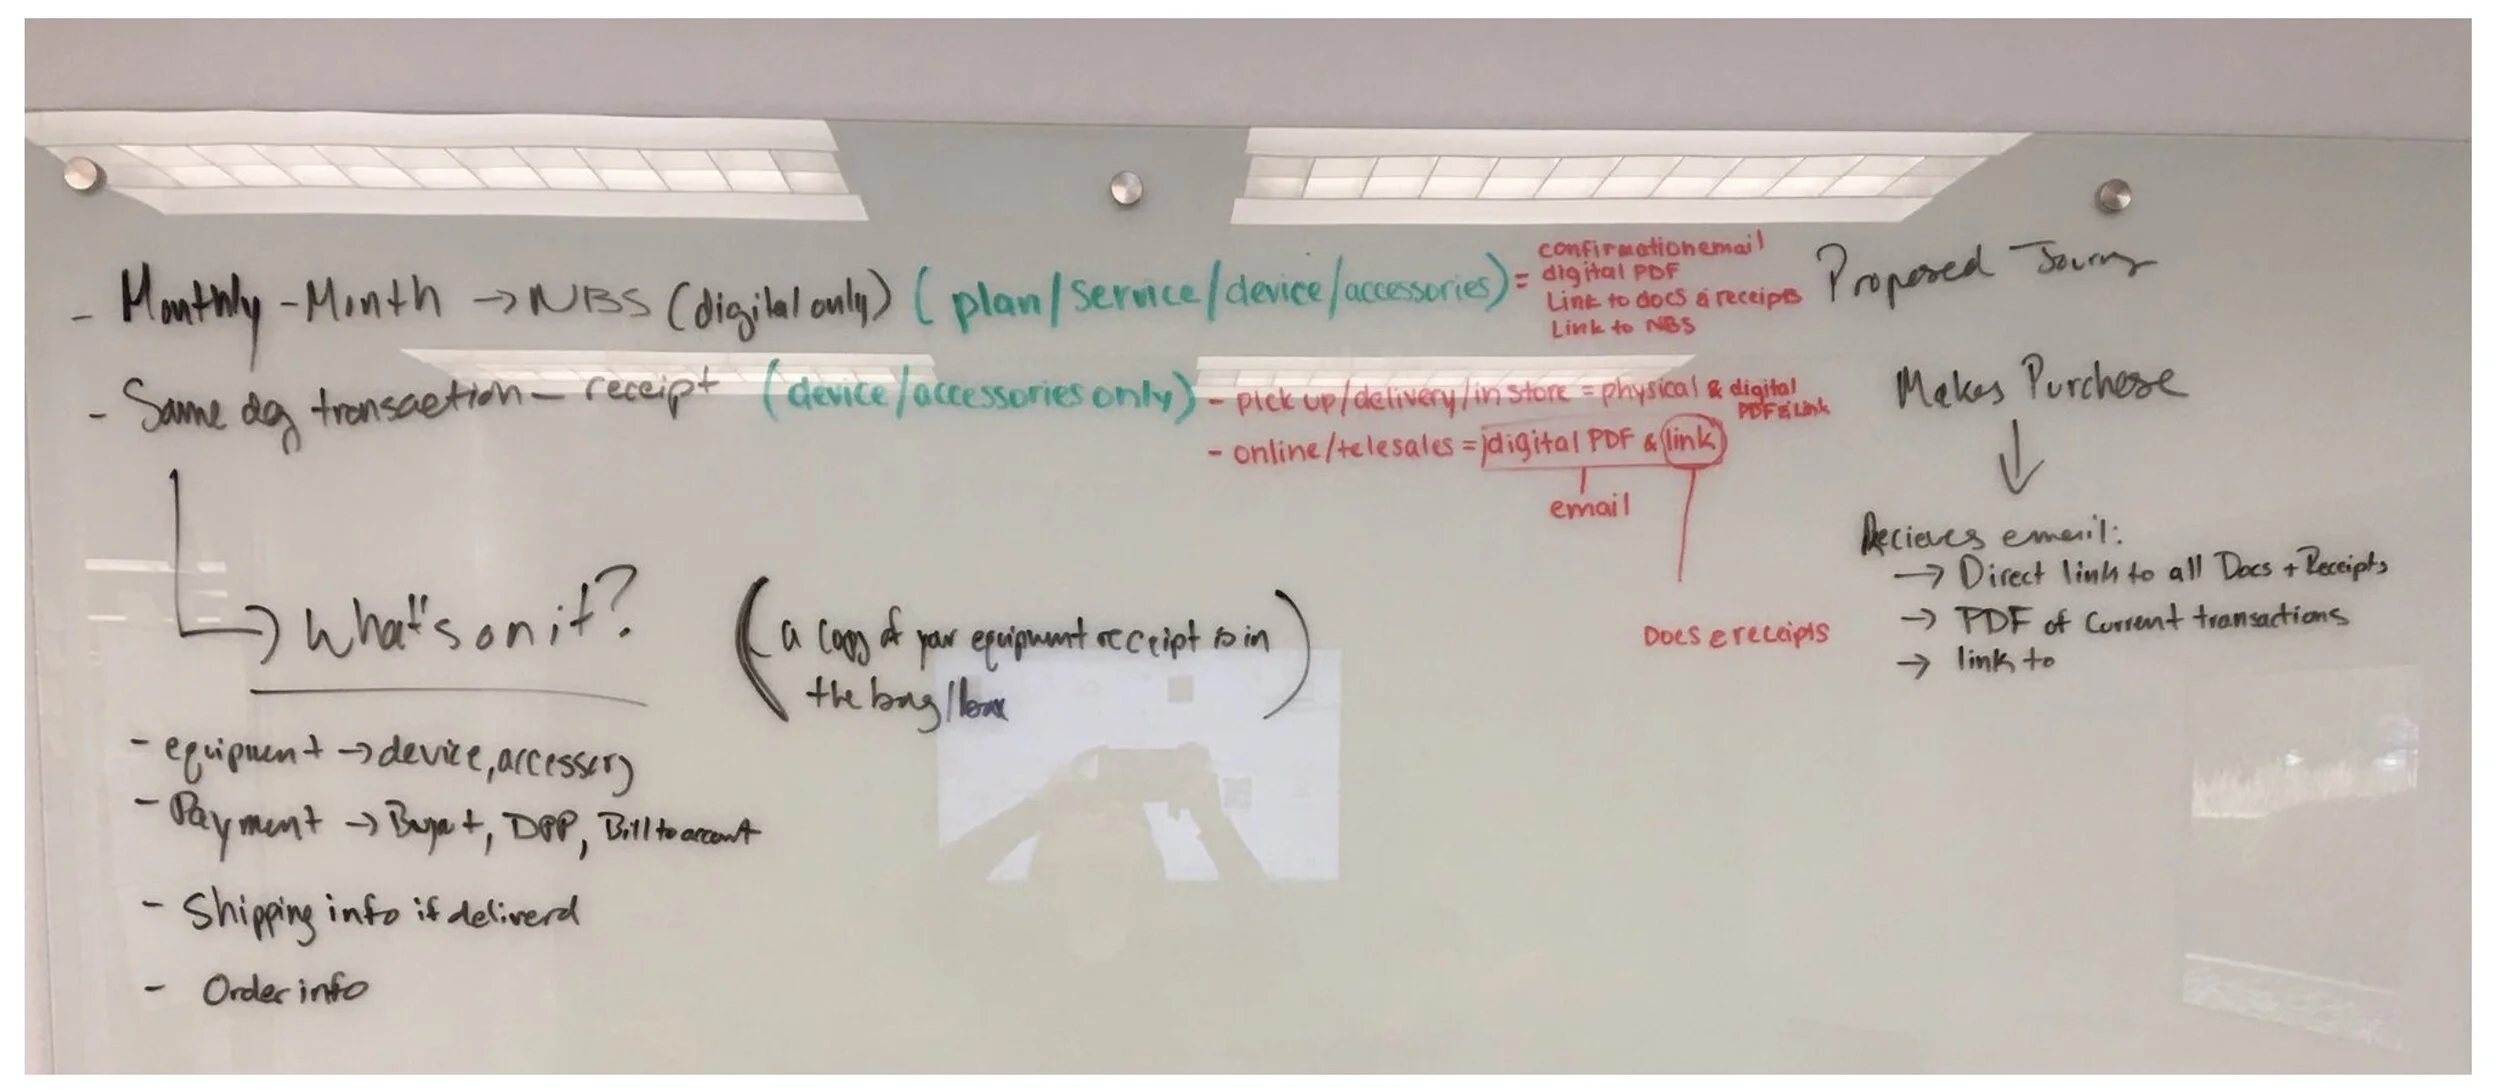 - Monthly - Month → NBS (digital only) (plan/service/device/accessories) = confirmation email
digital PDF
Link to docs & receipts
Link to NBS
- Same day transaction - receipt (device/accessories only) - pick up/delivery/in store = physical & digital
PDF & Link
- online/telesales = digital PDF & link
email
Docs & receipts
→ What's on it?
(a copy of your equipment receipt is in
the bag/box)
- equipment → device, accessory
- Payment → Buyout, DPP, Bill to account
- Shipping info if deliverd
- Order info
Proposed Journey
Makes Purchase
↓
Recieves email:
→ Direct link to all Docs + Receipts
→ PDF of Current transactions
→ link to